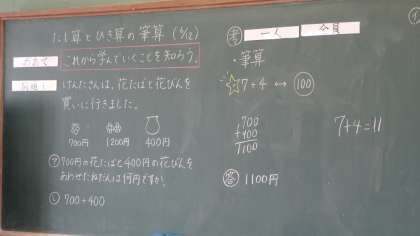 たし算とひき算の筆算(5/12)
めあて
これから学んでいくことを知ろう。
問題1
けんたさんは、花たばと花びんを
買いに行きました。
700円 1200円 400円
ア 700円の花たばと400円の花びんを
あわせたねだんは何円ですか。
し 700+400
考
・筆算
7+4 ↔ 100
700
+400
1100
7+4=11
答 1100円